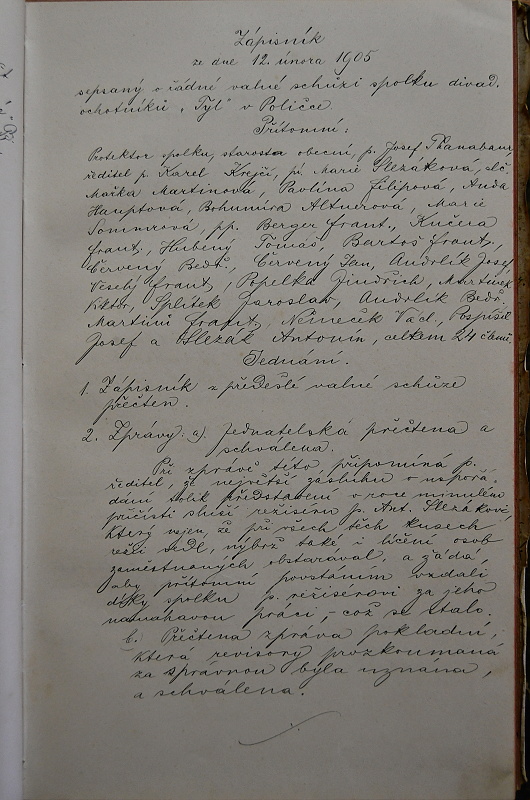 Zápisník
ze dne 12. února 1905
sepsaný o řádné valné schůzi spolku divad.
ochotníků „Tyl" v Poličce
Přítomni:
Protektor spolku, starosta obecní, p. Josef
ředitel p. Karel Krejčí, pí. Marie Slezáková, slč.
Mařka Martinová, Pavlína Filipová, Anda
Hauptová, Bohumíra Altnerová, Marie
Sommrová, pp. Berger frant., Kučera
frant., Hubený Tomáš, Bartoš frant.,
Červený Bedř., Červený Jan, Andrlík Josef,
Veselý frant., Popelka Jindřich, Martinek
Viktor, Splítek Jaroslav, Andrlík Bedř.
Martinů frant., Němeček Václ., Pospíšil
Josef a Slezák Antonín, celkem 24 členů.
Jednání.
1. Zápisník z předešlé valné schůze
přečten.
2. Zprávy. a) Jednatelská přečtena a
schválena.
Při zprávě této připomíná p.
ředitel, že největší zásluhu o uspořá-
dání tolik představení v roce minulém
přičísti sluší režiseru p. Ant. Slezákovi,
který nejen, že při všech těch kusech
režii vedl, nýbrž také i líčení osob
zaměstnaných obstarával, a žádá,
aby přítomní povstáním vzdali
díky spolku p. režiserovi za jeho
namáhavou práci, – což se stalo.
b. Přečtena zpráva pokladní,
která revisory prozkoumaná
za správnou byla uznána,
a schválena.